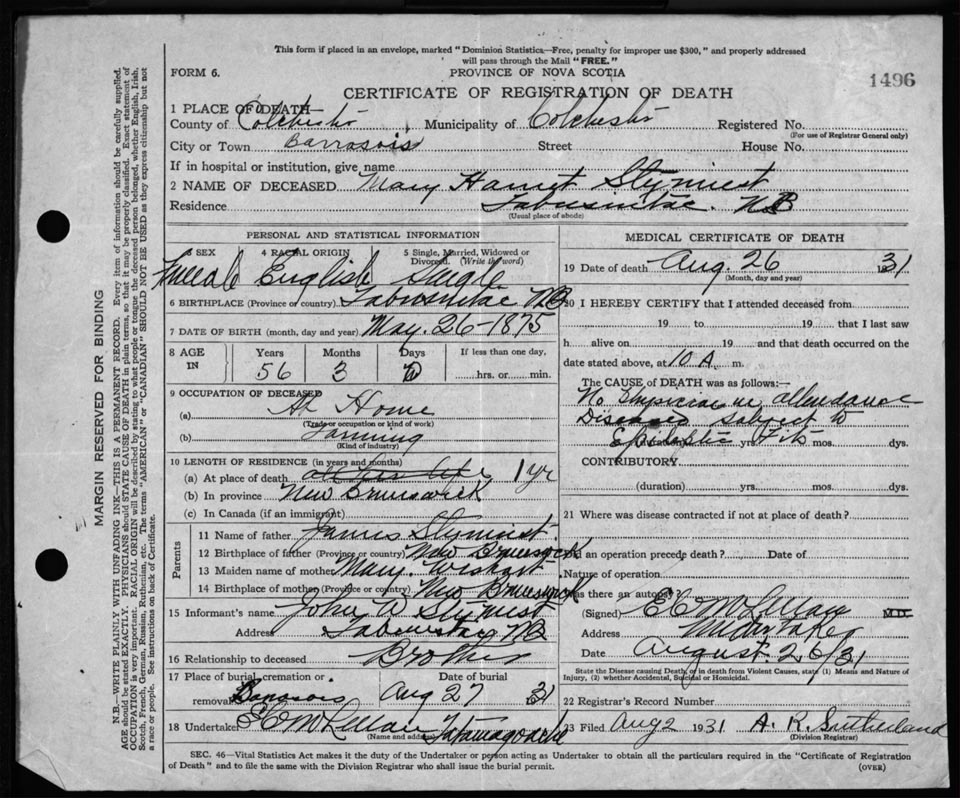 This form if placed in an envelope, marked "Dominion Statistics—Free, penalty for improper use $300," and properly addressed
will pass through the Mail "FREE."
FORM 6.
PROVINCE OF NOVA SCOTIA
1496
CERTIFICATE OF REGISTRATION OF DEATH
1 PLACE OF DEATH
County of Colchester Municipality of Colchester Registered No.
(For use of Registrar General only)
City or Town Barrasois Street House No.
If in hospital or institution, give name
2 NAME OF DECEASED Mary Harriet Stymiest
Residence Tabusintac. NB
(Usual place of abode)
PERSONAL AND STATISTICAL INFORMATION
3 SEX 4 RACIAL ORIGIN 5 Single, Married, Widowed or Divorced. (Write the word)
Female English Single
6 BIRTHPLACE (Province or country) Tabusintac NB
7 DATE OF BIRTH (month, day and year) May. 26-1875
8 AGE IN Years Months Days If less than one day,
56 3 hrs. or min.
9 OCCUPATION OF DECEASED
(a) At Home
(Trade or occupation or kind of work)
(b) Farming
(Kind of industry)
10 LENGTH OF RESIDENCE (in years and months)
(a) At place of death all her life, 1 yr
(b) In province New Brunswick
(c) In Canada (if an immigrant)
Parents
11 Name of father James Stymiest
12 Birthplace of father (Province or country) New Brunswick
13 Maiden name of mother Mary. Wishart
14 Birthplace of mother (Province or country) New Brunswick
15 Informant's name John A Stymiest
Address Tabusintac NB
16 Relationship to deceased Brother
17 Place of burial, cremation or removal Date of burial
Barrasois Aug 27 31
18 Undertaker E C McLellan Tatamagouche
(Name and address)
MEDICAL CERTIFICATE OF DEATH
19 Date of death Aug. 26 31
(Month, day and year)
20 I HEREBY CERTIFY that I attended deceased from
19 to 19 that I last saw
h alive on 19 and that death occurred on the
date stated above, at 10 A. m.
The CAUSE of DEATH was as follows:—
No Physician in attendance
Diseased subject to
Epileptic Fits
yrs. mos. dys.
CONTRIBUTORY
(duration) yrs. mos. dys.
21 Where was disease contracted if not at place of death?
Did an operation precede death? Date of
Nature of operation
Was there an autopsy?
(Signed) E C McLellan M.D.
Address Undertaker
Date August 26/31
State the Disease causing Death, or in death from Violent Causes, state (1) Means and Nature of Injury, (2) whether Accidental, Suicidal or Homicidal.
22 Registrar's Record Number
23 Filed Aug 2 1931 A. R. Sutherland
(Division Registrar)
SEC. 46—Vital Statistics Act makes it the duty of the Undertaker or person acting as Undertaker to obtain all the particulars required in the "Certificate of Registration
of Death" and to file the same with the Division Registrar who shall issue the burial permit.
(OVER)
MARGIN RESERVED FOR BINDING
N.B.—WRITE PLAINLY WITH UNFADING INK—THIS IS A PERMANENT RECORD. Every item of information should be carefully supplied.
AGE should be stated EXACTLY. PHYSICIANS should STATE CAUSE OF DEATH in plain terms, so that it may be properly classified. Exact statement of
OCCUPATION is very important. RACIAL ORIGIN will be described by stating to what people or tongue the deceased person belonged, whether English, Irish,
Scotch, French, German, Russian, Ruthenian, etc. The terms "AMERICAN" or "CANADIAN" SHOULD NOT BE USED as they express citizenship but not
a race or people. See instructions on back of Certificate.